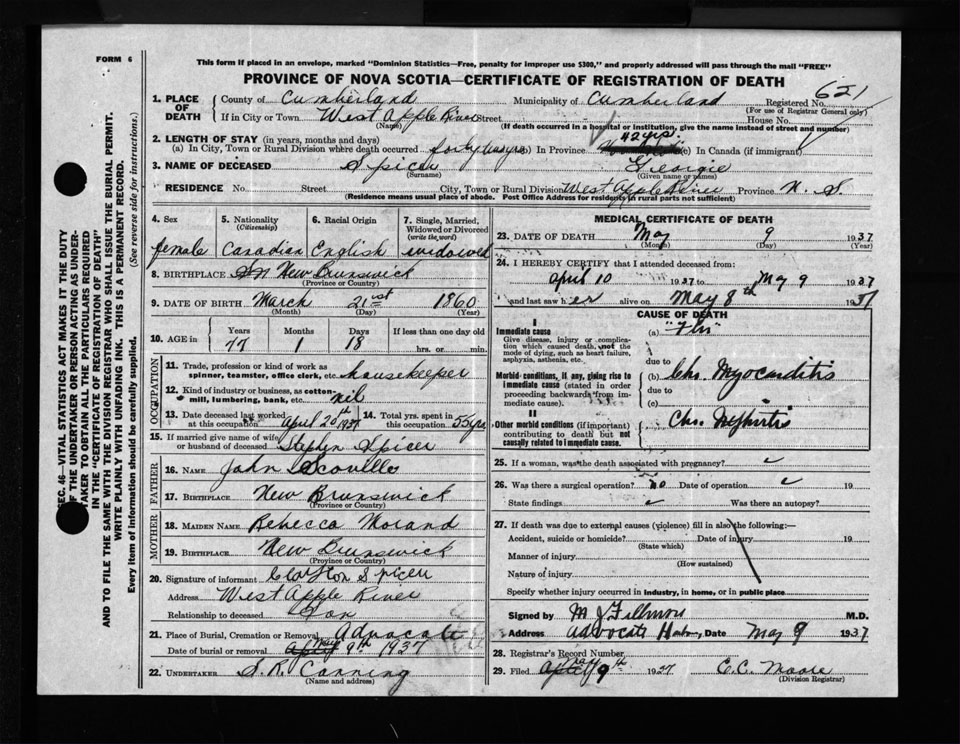 FORM 6
This form if placed in an envelope, marked "Dominion Statistics—Free, penalty for improper use $300," and properly addressed will pass through the mail "FREE"
PROVINCE OF NOVA SCOTIA—CERTIFICATE OF REGISTRATION OF DEATH
621
1. PLACE OF DEATH
County of Cumberland Municipality of Cumberland Registered No.
(For use of Registrar General only)
If in City or Town West Apple River Street House No.
(Name) (If death occurred in a hospital or institution, give the name instead of street and number)
2. LENGTH OF STAY (in years, months and days)
42 yrs.
(a) In City, Town or Rural Division where death occurred forty in Province (c) In Canada (if immigrant)
3. NAME OF DECEASED Spicer Georgie
(Surname) (Given name or names)
RESIDENCE No. Street City, Town or Rural Division West Apple River Province N. S.
(Residence means usual place of abode. Post Office Address for residents in rural parts not sufficient)
4. Sex female
5. Nationality (Citizenship) Canadian
6. Racial Origin English
7. Single, Married, Widowed or Divorced (write the word) widowed
8. BIRTHPLACE New Brunswick
(Province or Country)
9. DATE OF BIRTH March 21st 1860
(Month) (Day) (Year)
10. AGE in Years Months Days If less than one day old
77 1 18 hrs. or min.
OCCUPATION
11. Trade, profession or kind of work as spinner, teamster, office clerk, etc. housekeeper
12. Kind of industry or business, as cotton-mill, lumbering, bank, etc. nil
13. Date deceased last worked at this occupation April 20th 1937
14. Total yrs. spent in this occupation 55 yrs
15. If married give name of wife or husband of deceased Stephen Spicer
FATHER
16. NAME John
17. BIRTHPLACE New Brunswick
(Province or Country)
MOTHER
18. MAIDEN NAME Rebecca Morand
19. BIRTHPLACE New Brunswick
(Province or Country)
20. Signature of informant Clayton Spicer
Address West Apple River
Relationship to deceased Son
21. Place of Burial, Cremation or Removal Advocate
Date of burial or removal May 9th 1937
22. UNDERTAKER S. R. Canning
(Name and address)
MEDICAL CERTIFICATE OF DEATH
23. DATE OF DEATH May 9 1937
(Month) (Day) (Year)
24. I HEREBY CERTIFY that I attended deceased from:
April 10 1937 to May 9 1937
and last saw her alive on May 8th 1937
CAUSE OF DEATH
I
Immediate cause (a) "Flu"
Give disease, injury or complication which caused death, not the mode of dying, such as heart failure, asphyxia, asthenia, etc.
due to
Morbid conditions, if any, giving rise to immediate cause (stated in order proceeding backwards from immediate cause).
(b) Chr. Myocarditis
due to
(c)
II
Other morbid conditions (if important) contributing to death but not causally related to immediate cause.
Chr. Nephritis
25. If a woman, was the death associated with pregnancy?
26. Was there a surgical operation? no Date of operation 19
State findings Was there an autopsy?
27. If death was due to external causes (violence) fill in also the following:—
Accident, suicide or homicide? Date of injury 19
(State which)
Manner of injury
(How sustained)
Nature of injury
Specify whether injury occurred in industry, in home, or in public place
Signed by M J Fillmore M.D.
Address Advocate Date May 9 1937
28. Registrar's Record Number
29. Filed May 9th 1937 E.C. Moore
(Division Registrar)
SEC. 46—VITAL STATISTICS ACT MAKES IT THE DUTY OF THE UNDERTAKER OR PERSON ACTING AS UNDERTAKER TO OBTAIN ALL THE PARTICULARS REQUIRED IN THE "CERTIFICATE OF REGISTRATION OF DEATH" AND TO FILE THE SAME WITH THE DIVISION REGISTRAR WHO SHALL ISSUE THE BURIAL PERMIT.
WRITE PLAINLY WITH UNFADING INK. THIS IS A PERMANENT RECORD.
Every item of information should be carefully supplied. (See reverse side for instructions.)